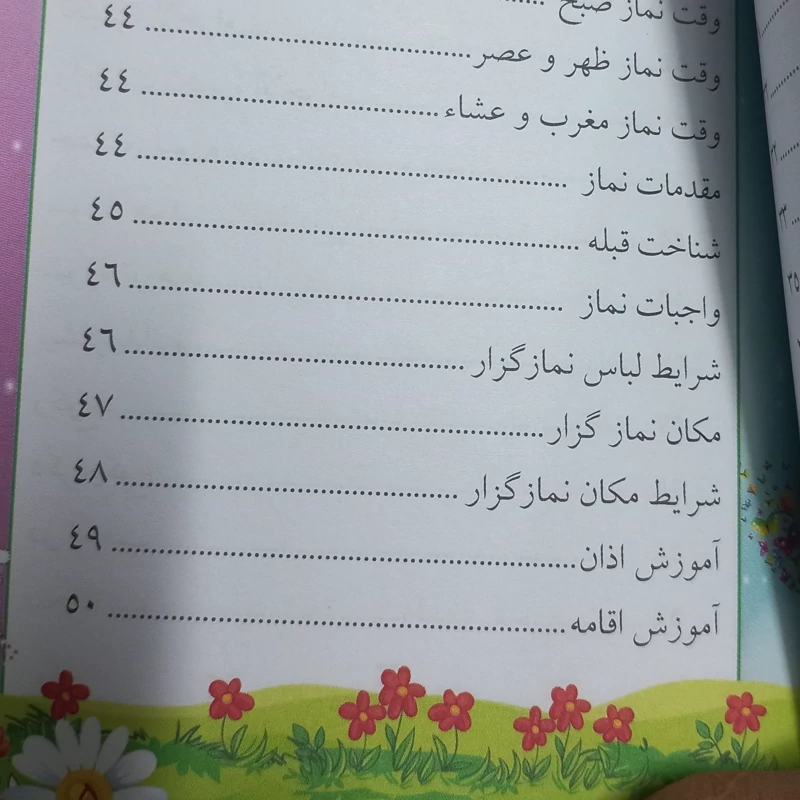 وقت نماز صبح ........
وقت نماز ظهر و عصر ........ ٤٤
وقت نماز مغرب و عشاء ........ ٤٤
مقدمات نماز ........ ٤٤
شناخت قبله ........ ٤٥
واجبات نماز ........ ٤٦
شرایط لباس نمازگزار ........ ٤٦
مکان نماز گزار ........ ٤٧
شرایط مکان نمازگزار ........ ٤٨
آموزش اذان ........ ٤٩
آموزش اقامه ........ ٥٠
٨
٣٣
٣٥